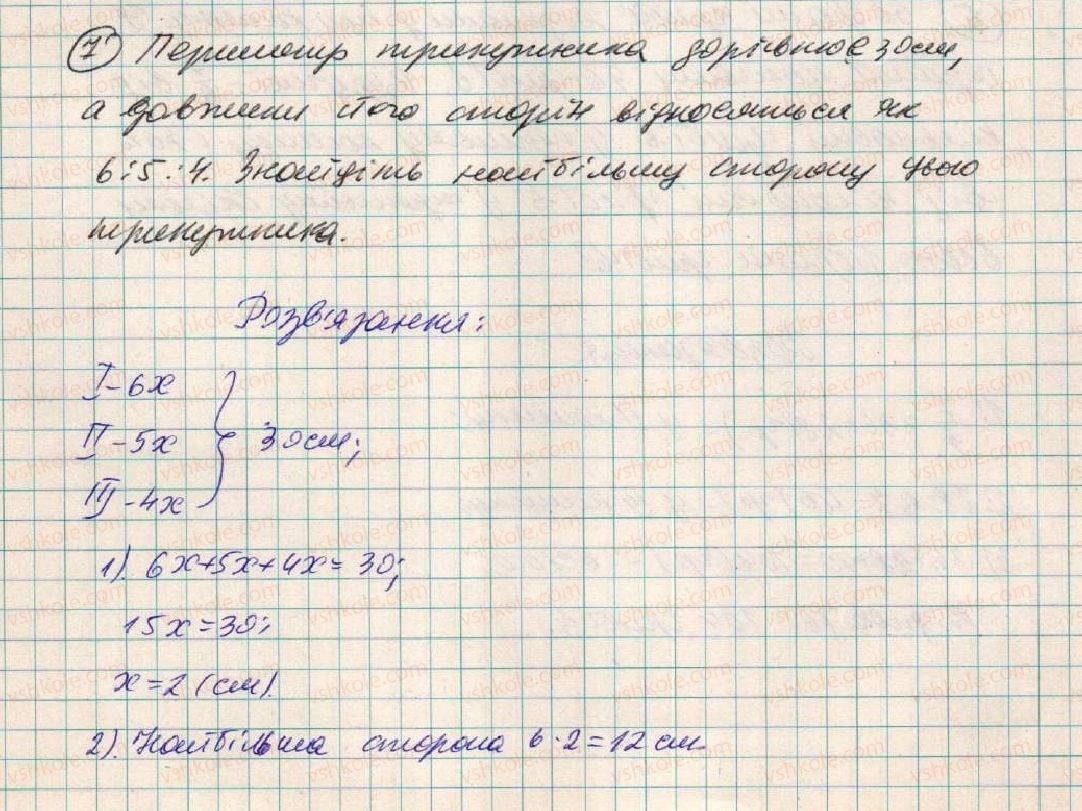 7 Периметр трикутника дорівнює 30см,
а довжини його сторін відносяться як
6:5:4. Знайдіть найбільшу сторону цього
трикутника.
Розв'язання:
I - 6x
II - 5x
III - 4x
30см;
1). 6x+5x+4x=30;
15x=30;
x=2 (см).
2). Найбільша сторона 6·2=12 см